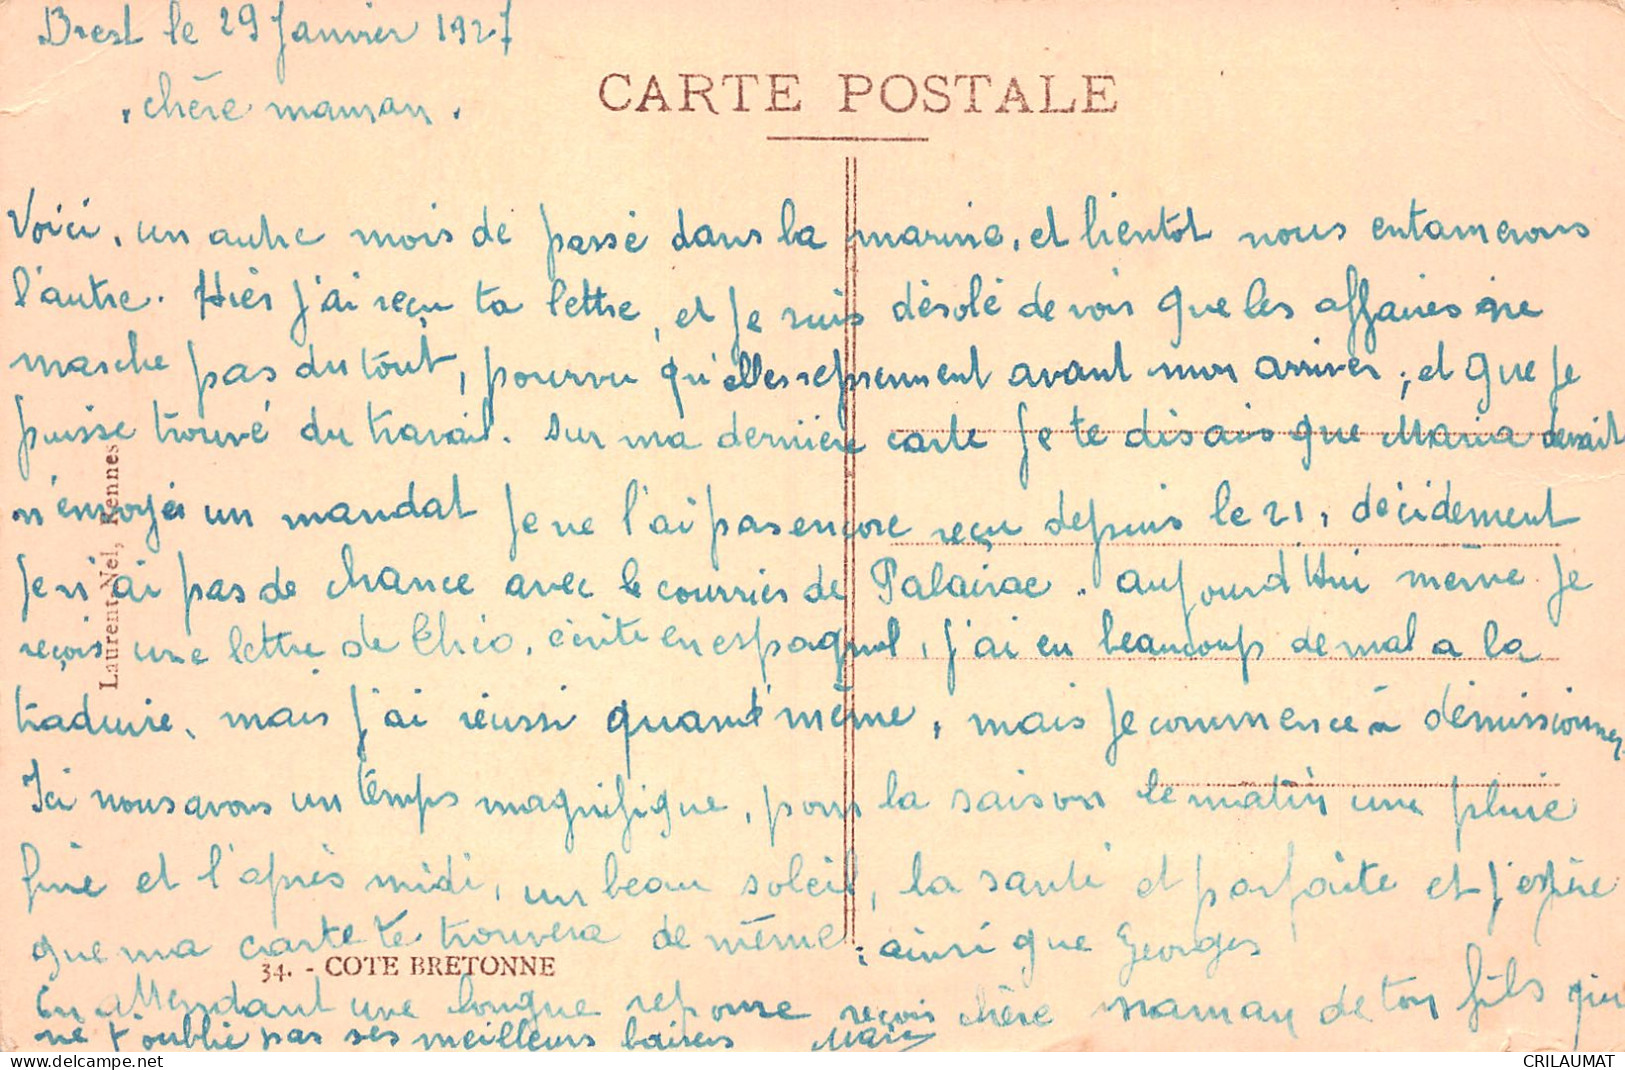 Brest le 29 Janvier 1927
CARTE POSTALE
chère maman.
Voici, un autre mois de passé dans la marine, et bientôt nous entamerons
l'autre. Hièr j'ai reçu ta lettre, et je suis désolé de voir que les affaires ne
marche pas du tout, pourvu qu'elles reprennent avant mon arriver, et que je
puisse trouvé du travail. Sur ma dernière carte je te disais que Maria devait
m'envoyer un mandat je ne l'ai pas encore reçu depuis le 21, décidement
je n'ai pas de chance avec le courrier de Palairac. aujourd'hui même je
reçois une lettre de écrite en espagnol, j'ai eu beaucoup de mal a la
traduire, mais j'ai réussi quand même, mais je commence à démissionner
Ici nous avons un temps magnifique, pour la saison le matin une pluie
fine et l'après midi, un beau soleil, la santé et parfaite et j'espère
que ma carte te trouvera de même, ainsi que Georges
34. - COTE BRETONNE
En attendant une longue reponse reçois chère maman de ton fils qui
ne t'oublie pas ses meilleurs baisers
Laurent-Nel, Rennes
CRILAUMAT